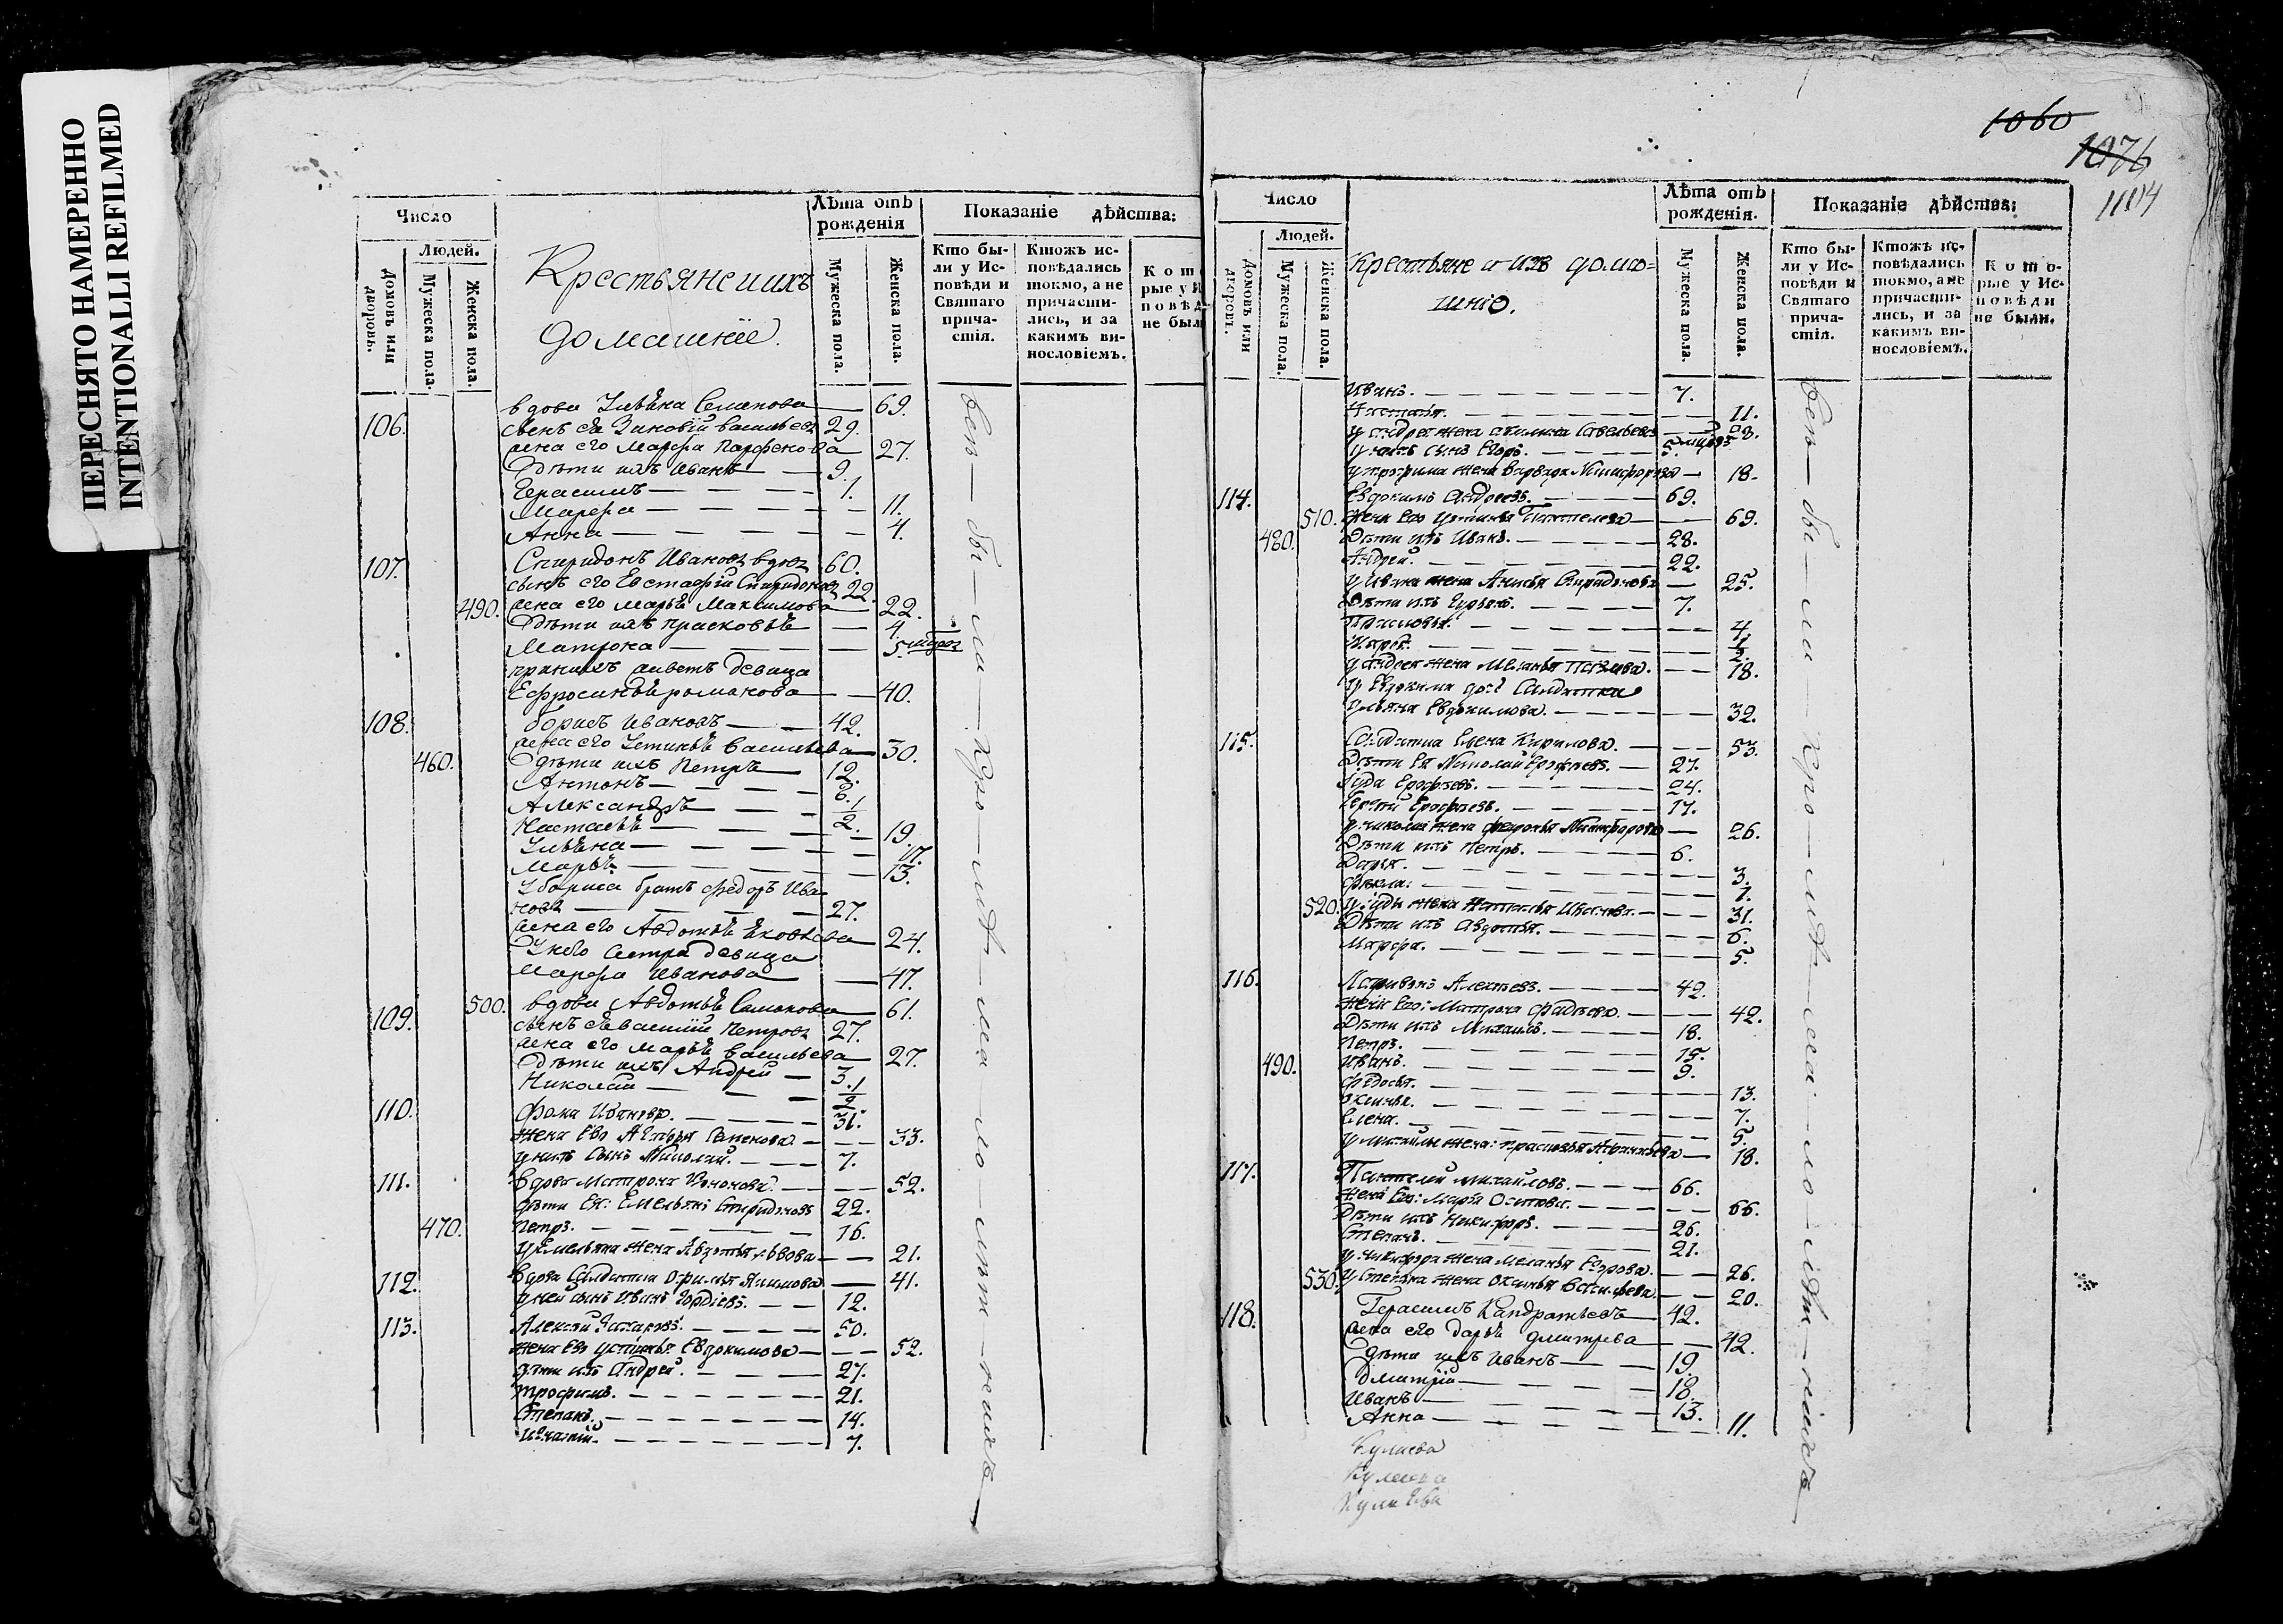 ПЕРЕСНЯТО НАМЕРЕННО
INTENTIONALLI REFILMED
Число
Людей.
Домовъ или дворовъ.
Мужеска пола.
Женска пола.
Крестьяне ихъ
домашнїе.
Лѣта отъ рожденїя
Мужеска пола.
Женска пола.
Показанїе дѣйства:
Кто были у Исповѣди и Святаго причастїя.
Ктожъ исповѣдались токмо, а не причастились, и за какимъ винословїемъ.
вдова Ульѣна Семенова 69.
106. сынъ еѣ Зиновїй Васильевъ 29.
жена его Марфа Парфенова 27.
дѣти ихъ Иванъ 9.
Герасимъ 1.
Марфа 11.
Анна 4.
107. Спиридонъ Ивановъ вдовъ 60.
сынъ его Евстафїй Спиридоновъ 22.
490. жена его Марьѣ Максимова 22.
дѣти ихъ Прасковьѣ 4.
Матрона 5.
при нихъ живетъ девица
Ефросиньѣ Романова 40.
108. Борисъ Ивановъ 42.
жена его Устиньѣ Васильева 30.
460. дѣти ихъ Петръ 12.
Антонъ 8.
Александръ 1/2.
Настасьѣ 19.
Ульѣна 17.
Марьѣ 13.
У Бориса братъ Федоръ Ива
новъ 27.
жена его Авдотьѣ Яковлева 24.
У него сестра девица
Марфа Иванова 47.
500. вдова Авдотьѣ Семенова 61.
109. сынъ еѣ Василїй Петровъ 27.
жена его Марьѣ Васильева 27.
дѣти ихъ Андрей 3.
Николай 1/2
110. Фома Ивановъ. 31.
жена Ево Агафья Семенова. 33.
у нихъ сынъ Николай. 7.
111. Вдова Матрона Кононова. 52.
дѣти Ея: Емельянъ Спиридоновъ 22.
470. Петръ. 16.
у Емельяна жена Авдотья Львова 21.
112. Вдова Салдатка Офимья Якимова 41.
у ней сынъ Иванъ Гордїевъ. 12.
113. Алексѣй Захаровъ. 50.
жена Ево Устинья Евдокимова 52.
дѣти ихъ Андрей. 27.
Трофимъ. 21.
Степанъ. 14.
Игнатїй. 7.
всѣ были при исповѣди
1060
1076
1104
Число
Людей.
Домовъ или дворовъ.
Мужеска пола.
Женска пола.
Крестьяне и ихъ дома=
шнїе.
Лѣта отъ рожденїя.
Мужеска пола.
Женска пола.
Показанїе дѣйства:
Кто были у Исповѣди и Святаго причастїя.
Ктожъ исповѣдались токмо, а не причастились, и за какимъ винословїемъ.
Которые у Исповѣди не были.
Иванъ. 7.
Настасья. 11.
у Андрея жена Акилина Савельева 28.
у нихъ сынъ Егоръ. 5.
у Трофима жена Варвара Никифорова 18.
114. Евдокимъ Андреевъ. 69.
510. жена Ево Устинья Пантелева 69.
480. Дѣти ихъ Иванъ. 28.
Андрей. 22.
у Ивана жена Анисья Спиридонова 25.
Дѣти ихъ Гурьянъ. 7.
Прасковья. 4.
Марья. 1/2.
у Андрея жена Меланья Павлова. 18.
у Евдокима дочь Салдатка
Ульяна Евдокимова. 32.
115. Салдатка Елена Кирилова. 53.
Дѣти Ея Николай Ерофѣевъ. 27.
Іуда Ерофѣевъ. 24.
Сергѣй Ерофѣевъ. 17.
у Николая жена Федосья Никифорова 26.
Дѣти ихъ Петръ. 6.
Дарья. 3.
Фекла. 1.
520. у Іуды жена Наталья Иванова. 31.
Дѣти ихъ Авдотья. 6.
Марфа. 5.
116. Ларивонъ Алексѣевъ. 42.
жена Ево: Матрона Фадѣева. 42.
Дѣти ихъ Михаилъ. 18.
Петръ. 15.
490. Иванъ. 9.
Федосья. 13.
Оксинья. 7.
Елена. 5.
у Михайлы жена: Прасковья Афанасьева 18.
117. Пантелей Михайловъ. 66.
жена Ево: Марья Осипова. 66.
Дѣти ихъ Никифоръ. 26.
Степанъ. 21.
у Никифора жена Меланья Егорова. 26.
530. у Степана жена Оксинья Васильева. 20.
118. Герасимъ Кандратьевъ 42.
жена его Дарьѣ Дмитрева 42.
дѣти ихъ Иванъ 19.
Дмитрїй 18.
Иванъ 13.
Анна 11.